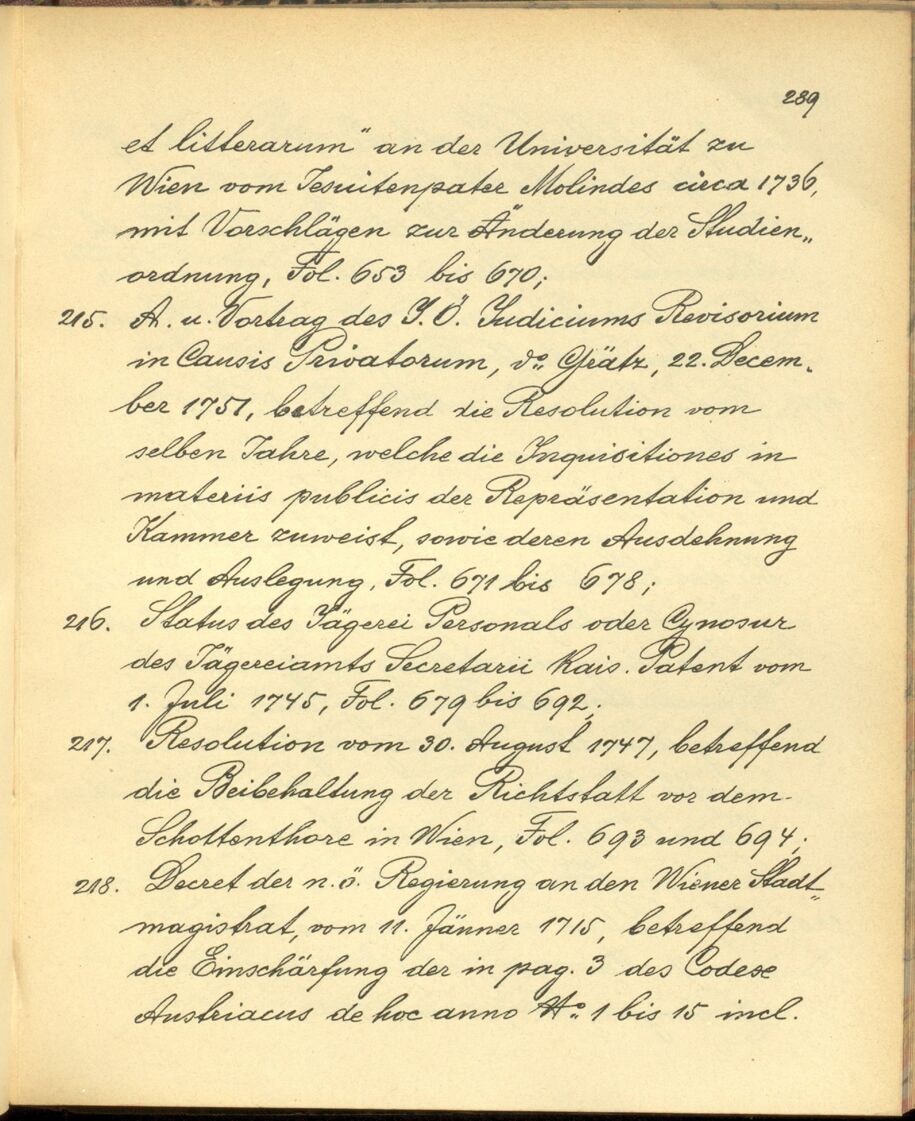 289
et litterarum" an der Universität zu
Wien vom Jesuitenpater Molindes circa 1736,
mit Vorschlägen zur Änderung der Studien„
ordnung, Fol. 653 bis 670;
215. A. u. Vortrag des I. Ö. Judiciums Revisorium
in Causis Privatorum, do. Grätz, 22. Decem„
ber 1751, betreffend die Resolution vom
selben Jahre, welche die Inquisitiones in
materiis publicis der Repräsentation und
Kammer zuweist, sowie deren Ausdehnung
und Auslegung, Fol. 671 bis 678;
216. Status des Jägerei Personals oder Cynosur
des Jägereiamts Secretarii Kais. Patent vom
1. Juli 1745, Fol. 679 bis 692;
217. Resolution vom 30. August 1747, betreffend
die Beibehaltung der Richtstatt vor dem
Schottenthore in Wien, Fol. 693 und 694;
218. Decret der n. ö. Regierung an den Wiener Stadt„
magistrat, vom 11. Jänner 1715, betreffend
die Einschärfung der in pag. 3 des Codex
Austriacus de hoc anno No. 1 bis 15 incl.